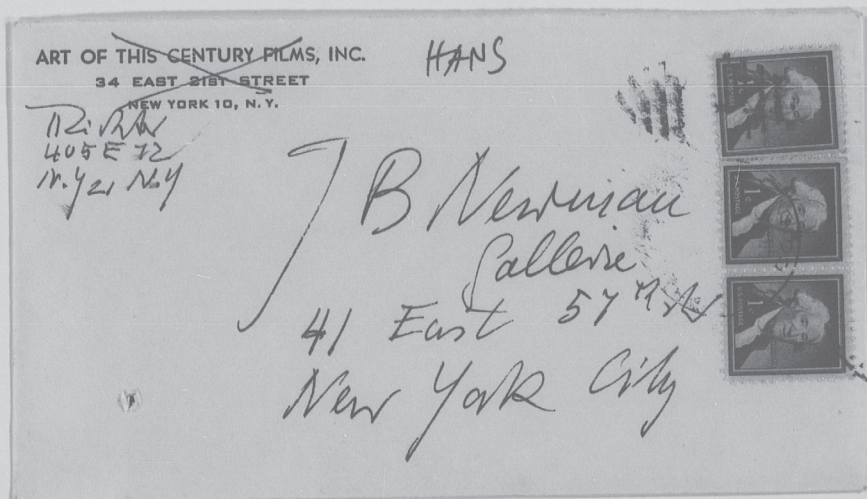 ART OF THIS CENTURY FILMS, INC.
34 EAST 21ST STREET
NEW YORK 10, N. Y.
HANS
Richter
405 E 72
N.Y 21 N.Y
J B Newman
Gallerie
41 East 57th St
New York City
1¢
1¢
1¢